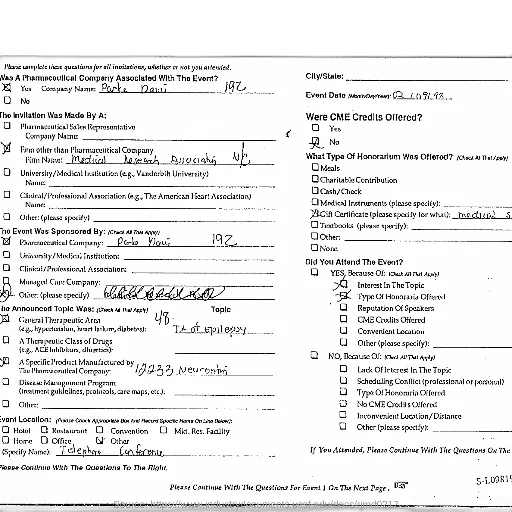 Please complete these questions for all invitations, whether or not you attended.
Was A Pharmaceutical Company Associated With The Event?
Yes Company Name: Parke Davis 192
No
The Invitation Was Made By A:
Pharmaceutical Sales Representative
Company Name:
Firm other than Pharmaceutical Company
Firm Name: Medical Research Associates
University/Medical Institution (e.g., Vanderbilt University)
Name:
Clinical/Professional Association (e.g., The American Heart Association)
Name:
Other: (please specify)
The Event Was Sponsored By: (Check All That Apply)
Pharmaceutical Company: Parke Davis 192
University/Medical Institution:
Clinical/Professional Association:
Managed Care Company:
Other: (please specify)
The Announced Topic Was: (Check All That Apply) Topic
General Therapeutic Area 48
(e.g., hypertension, heart failure, diabetes): Tx of epilepsy
A Therapeutic Class of Drugs
(e.g., ACE Inhibitors, diuretics):
A Specific Product Manufactured by
The Pharmaceutical Company: 12233 Neurontin
Disease Management Program
(treatment guidelines, protocols, care maps, etc.):
Other:
Event Location: (Please Check Appropriate Box And Record Specific Name On Line Below)
Hotel Restaurant Convention Mkt. Res. Facility
Home Office Other
(Specify Name): Telephone Conference
Please Continue With The Questions To The Right.
City/State:
Event Date (Month/Day/Year):
Were CME Credits Offered?
Yes
No
What Type Of Honorarium Was Offered? (Check All That Apply)
Meals
Charitable Contribution
Cash/Check
Medical Instruments (please specify):
Gift Certificate (please specify for what): medical
Textbooks (please specify):
Other:
None
Did You Attend The Event?
YES, Because Of: (Check All That Apply)
Interest In The Topic
Type Of Honoraria Offered
Reputation Of Speakers
CME Credits Offered
Convenient Location
Other (please specify):
NO, Because Of: (Check All That Apply)
Lack Of Interest In The Topic
Scheduling Conflict (professional or personal)
Type Of Honoraria Offered
No CME Credits Offered
Inconvenient Location/Distance
Other (please specify):
If You Attended, Please Continue With The Questions On The
Please Continue With The Questions For Event 1 On The Next Page.